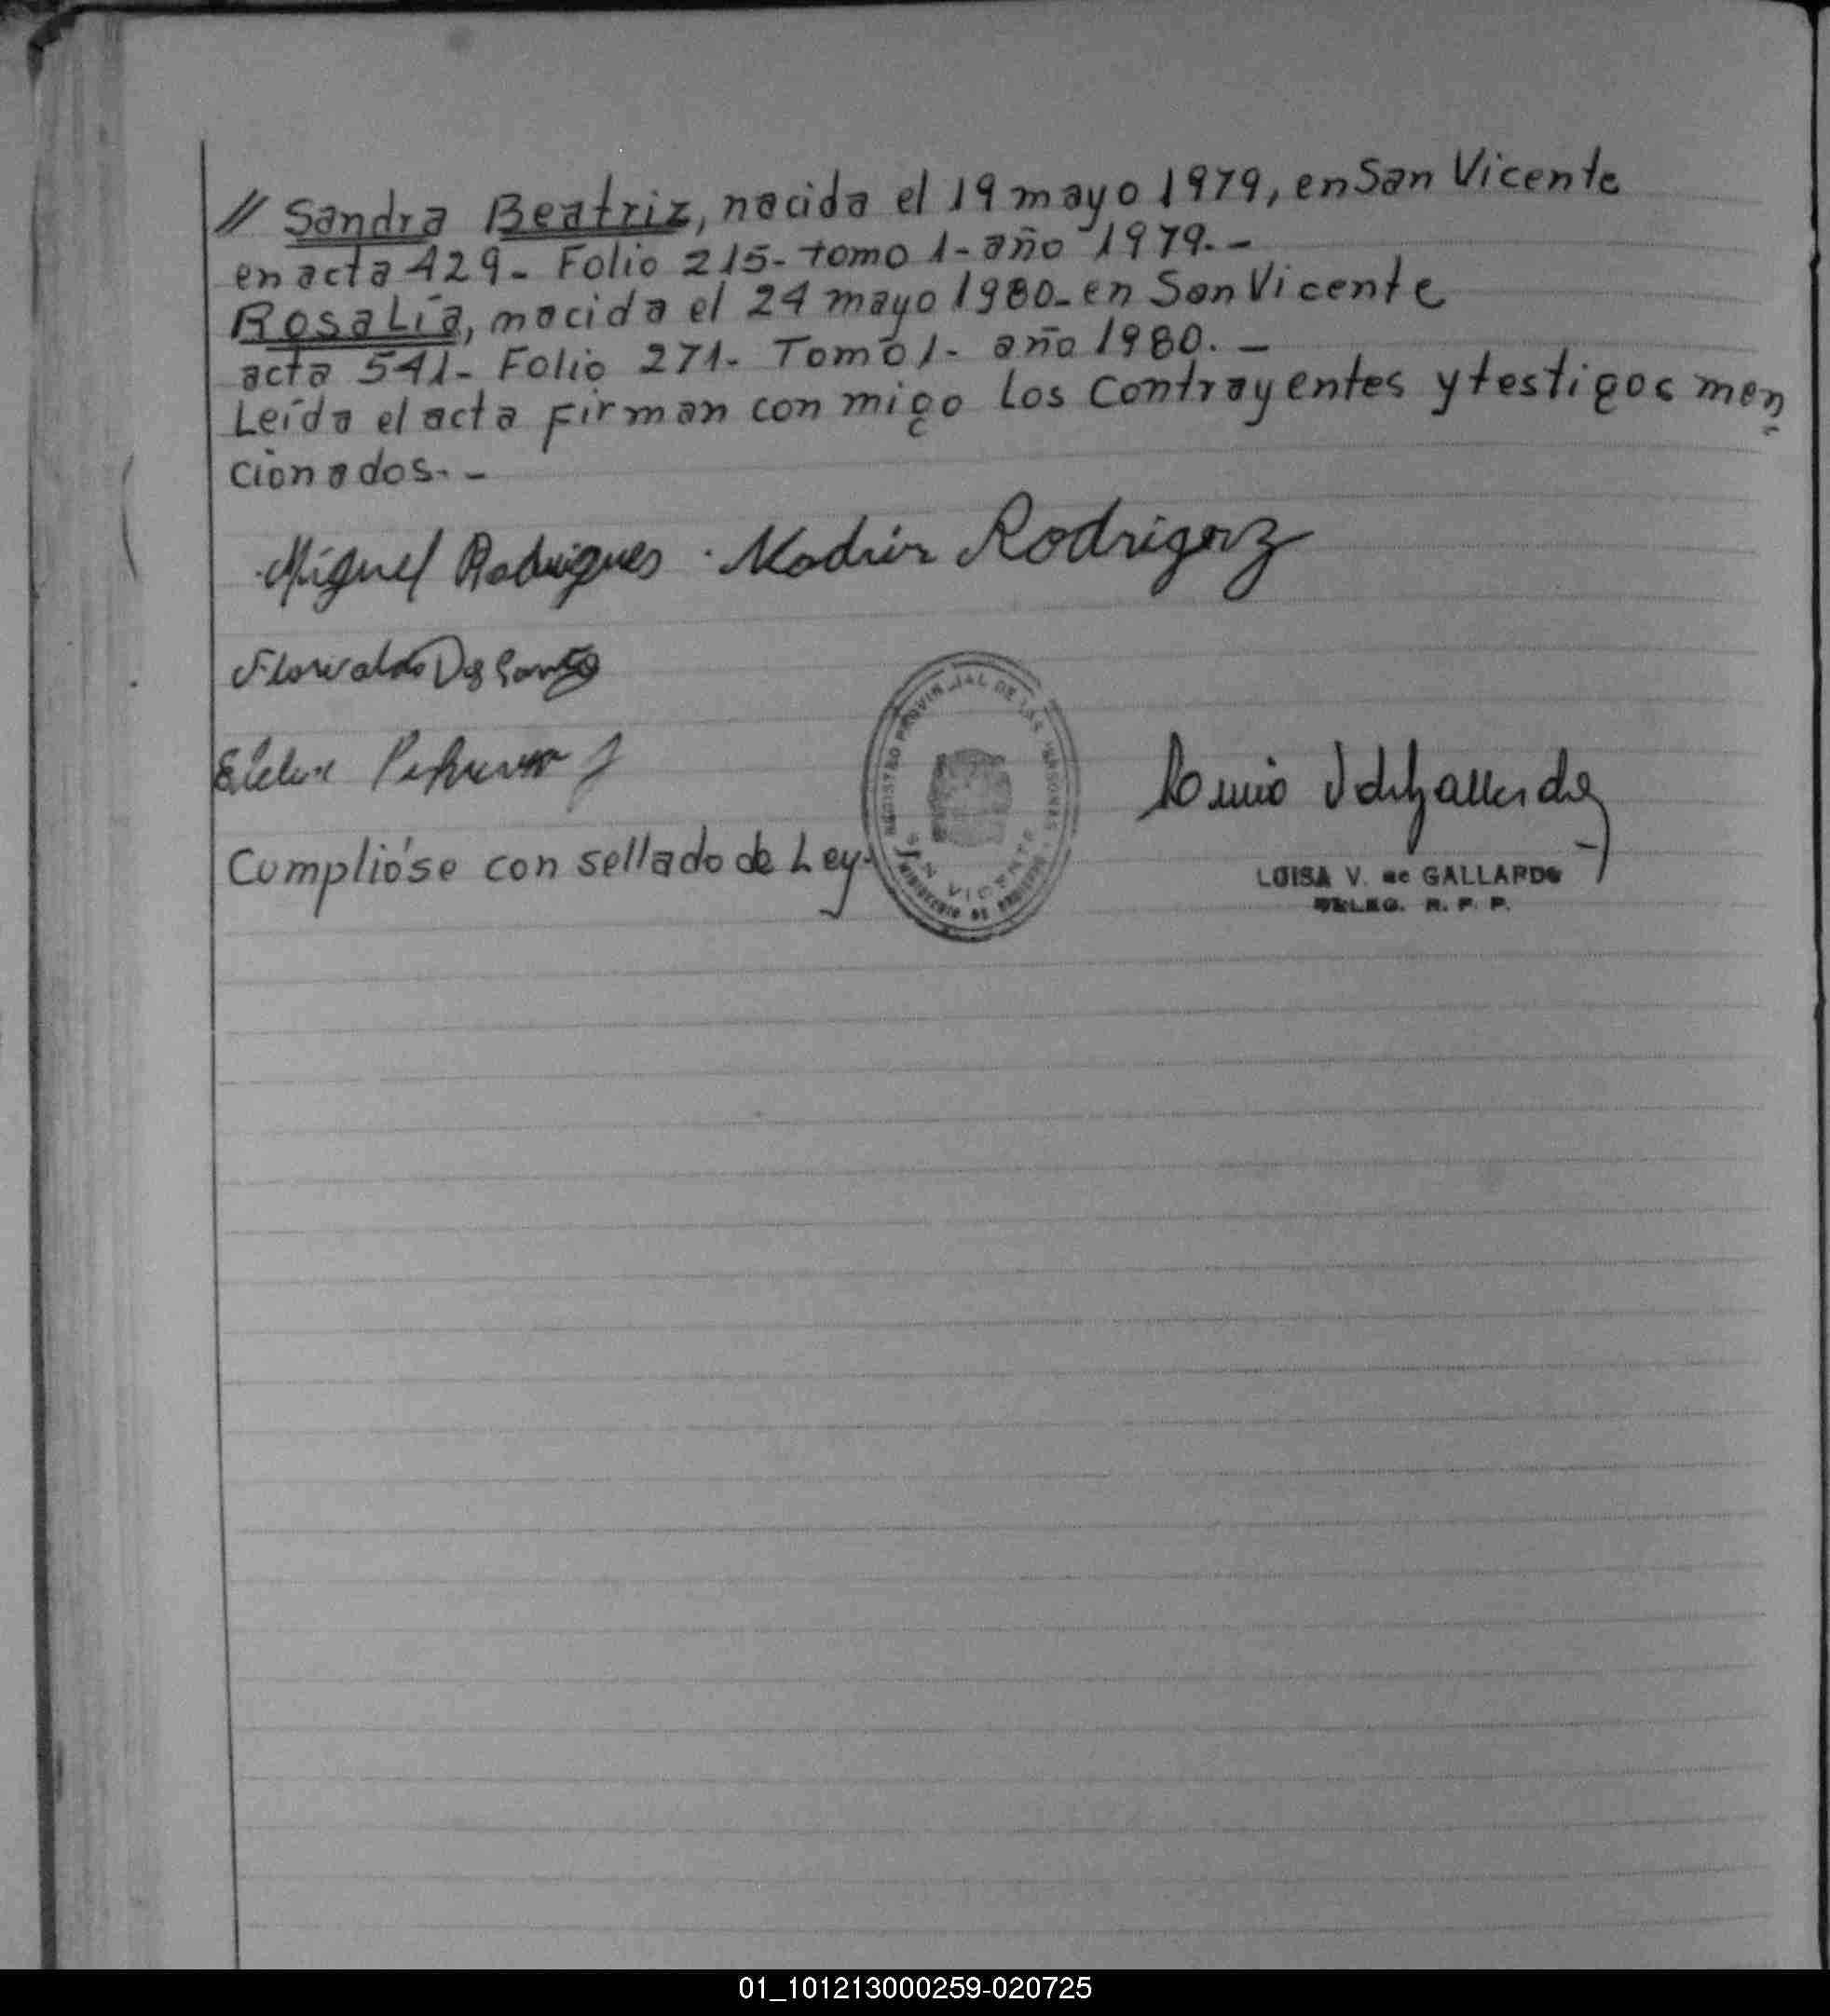 // Sandra Beatriz, nacida el 19 mayo 1979, en San Vicente
en acta 429- Folio 215- tomo 1- año 1979.-
Rosalía, nacida el 24 mayo 1980- en San Vicente
acta 541- Folio 271- Tomo 1- año 1980.-
Leída el acta firman con migo los contrayentes y testigos men
cionados.-
Miguel Rodrigues
Rodriguez
Dos Santos
REGISTRO PROVINCIAL DE LAS PERSONAS
SAN VICENTE
Cumplióse con sellado de Ley-
LUISA V. de GALLARDO
DELEG. R. P. P.
01_101213000259-020725